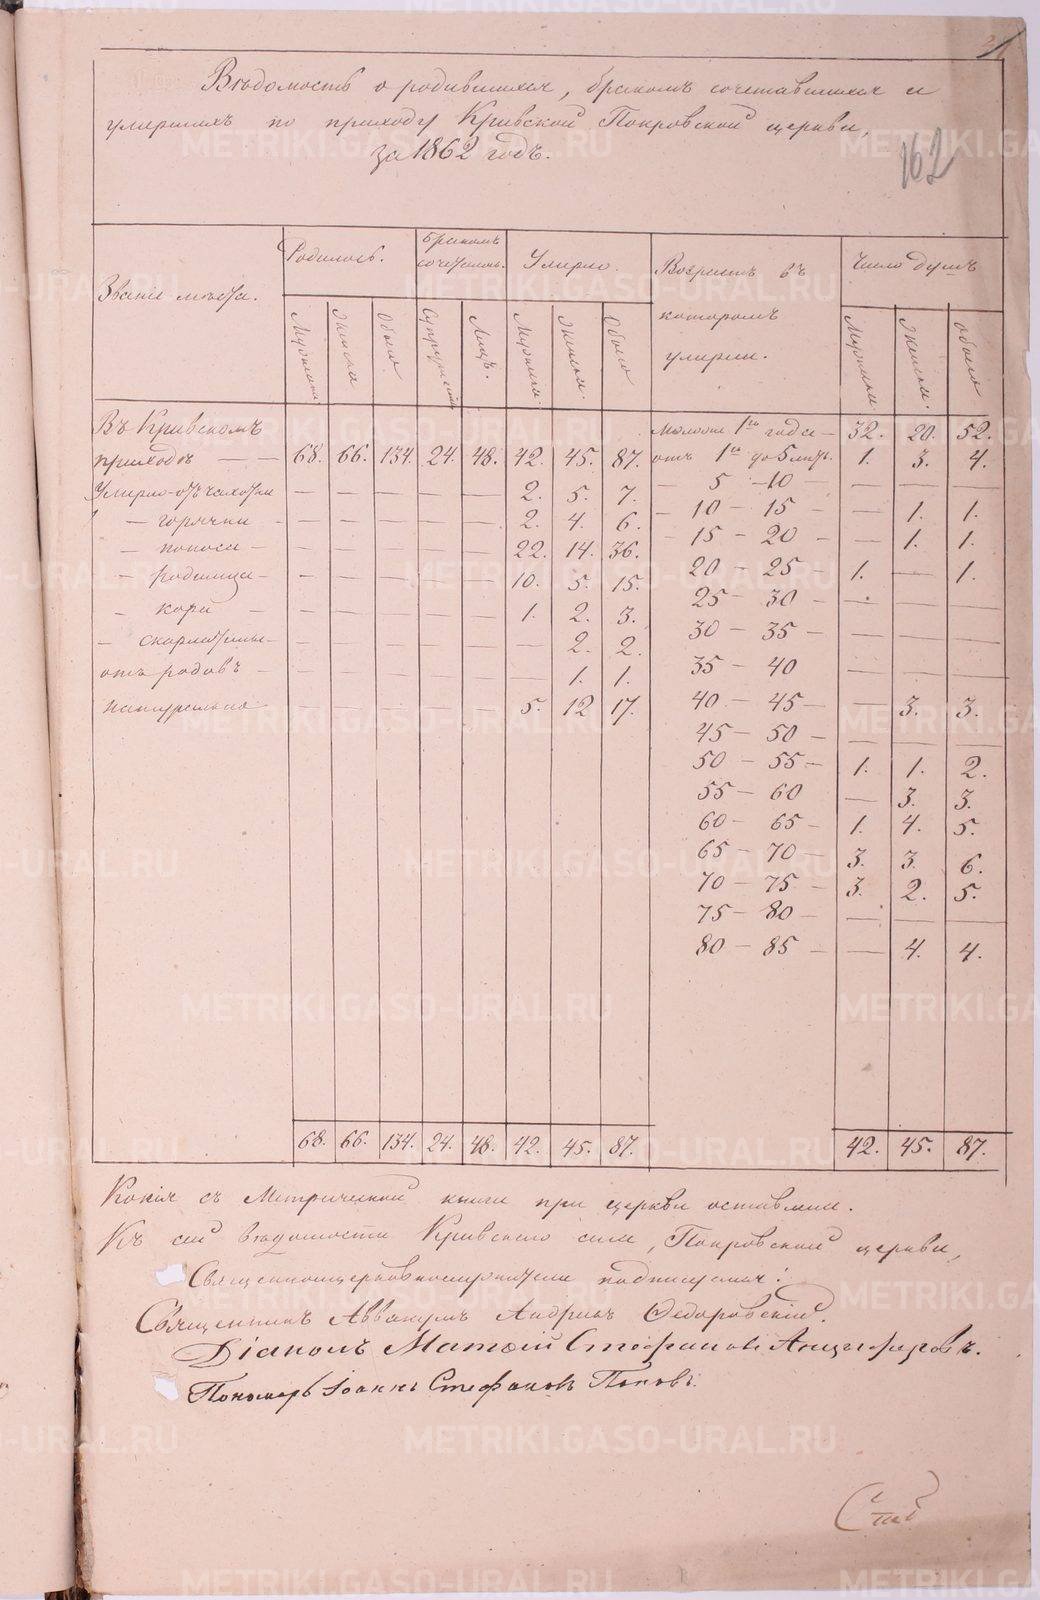 Вѣдомость о родившихся, бракомъ сочетавшихся и
умершихъ по приходу Кривской Покровской церкви,
за 1862 годъ.
162
Званіе мѣста.
Родилось.
Бракомъ сочетались.
Умерло.
Возрастъ въ которомъ умерли.
Число душъ
Мужеска Женска Обоего Супружествъ Лицъ. Мужеска Женска. Обоего Мужеска Женска. Обоего
Въ Кривскомъ
приходѣ — — 68. 66. 134. 24. 48. 42. 45. 87.
Умерло отъ чахотки — — — — — 2. 5. 7.
— горячки — — — — — — 2. 4. 6.
— поноса — — — — — — 22. 14. 36.
— родимца — — — — — — 10. 5. 15.
— кори — — — — — — 1. 2. 3.
— скарлатины — — — — — — — 2. 2.
отъ родовъ — — — — — — — 1. 1.
натурально — — — — — 5. 12 17.
моложе 1го года — 32. 20. 52.
отъ 1го до 5 лѣтъ. 1. 3. 4.
— 5 — 10 — — — —
— 10 — 15 — — 1. 1.
— 15 — 20 — — 1. 1.
20 — 25 — 1. — 1.
25 — 30 — — — —
30 — 35 — — — —
35 — 40 — — —
40 — 45 — — 3. 3.
45 — 50 — — — —
50 — 55 — 1. 1. 2.
55 — 60 — 3. 3.
60 — 65 — 1. 4. 5.
65 — 70 — 3. 3. 6.
70 — 75 — 3. 2. 5.
75 — 80 — — — —
80 — 85 — — 4. 4.
68. 66. 134. 24. 48. 42. 45. 87. 42. 45. 87.
Копія съ Метрической книги при церкви оставлена.
Къ сей вѣдомости Кривскаго села, Покровской церкви,
Священноцерковнослужители подписуемся:
Священникъ Аввакумъ Андреевъ Федоровскій.
Діаконъ Матѳій Стефановъ Анцыферовъ.
Пономарь Іоаннъ Стефановъ Поповъ.
METRIKI.GASO-URAL.RU